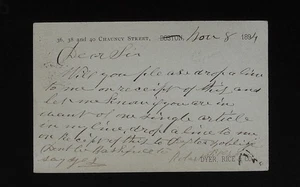 36, 38 and 40 Chauncy Street,
Boston, Nov 8 1894
Dear Sir
Will you please drop a line
to me on receipt of this, and
let me know if you are in
want of one single article
in my line, drop a line to me
on receipt of this to
say
Dyer, Rice